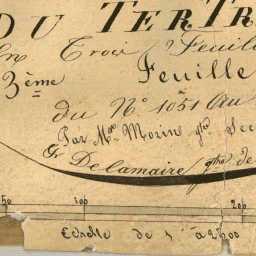 DU TERTR
En Trois Feuil
3ème Feuille
du N° 1051 au
Par Mr Morin gre Sec
Et Delamaire, gre de
50 100 200
Echelle de 1 à 2500